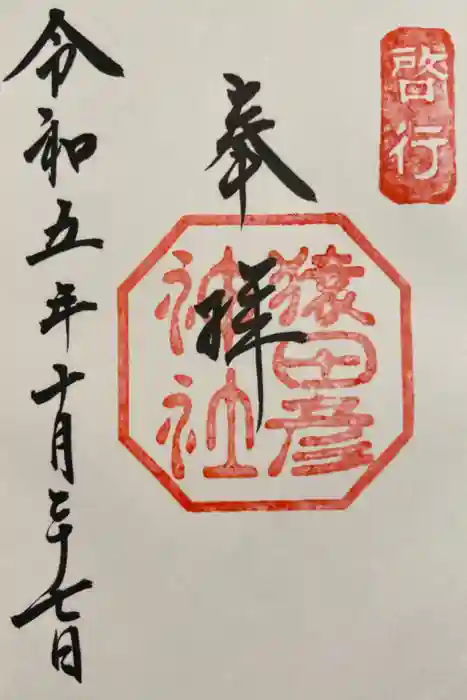 啓行
奉拝
猿田彦
神社
令和五年十月二十七日